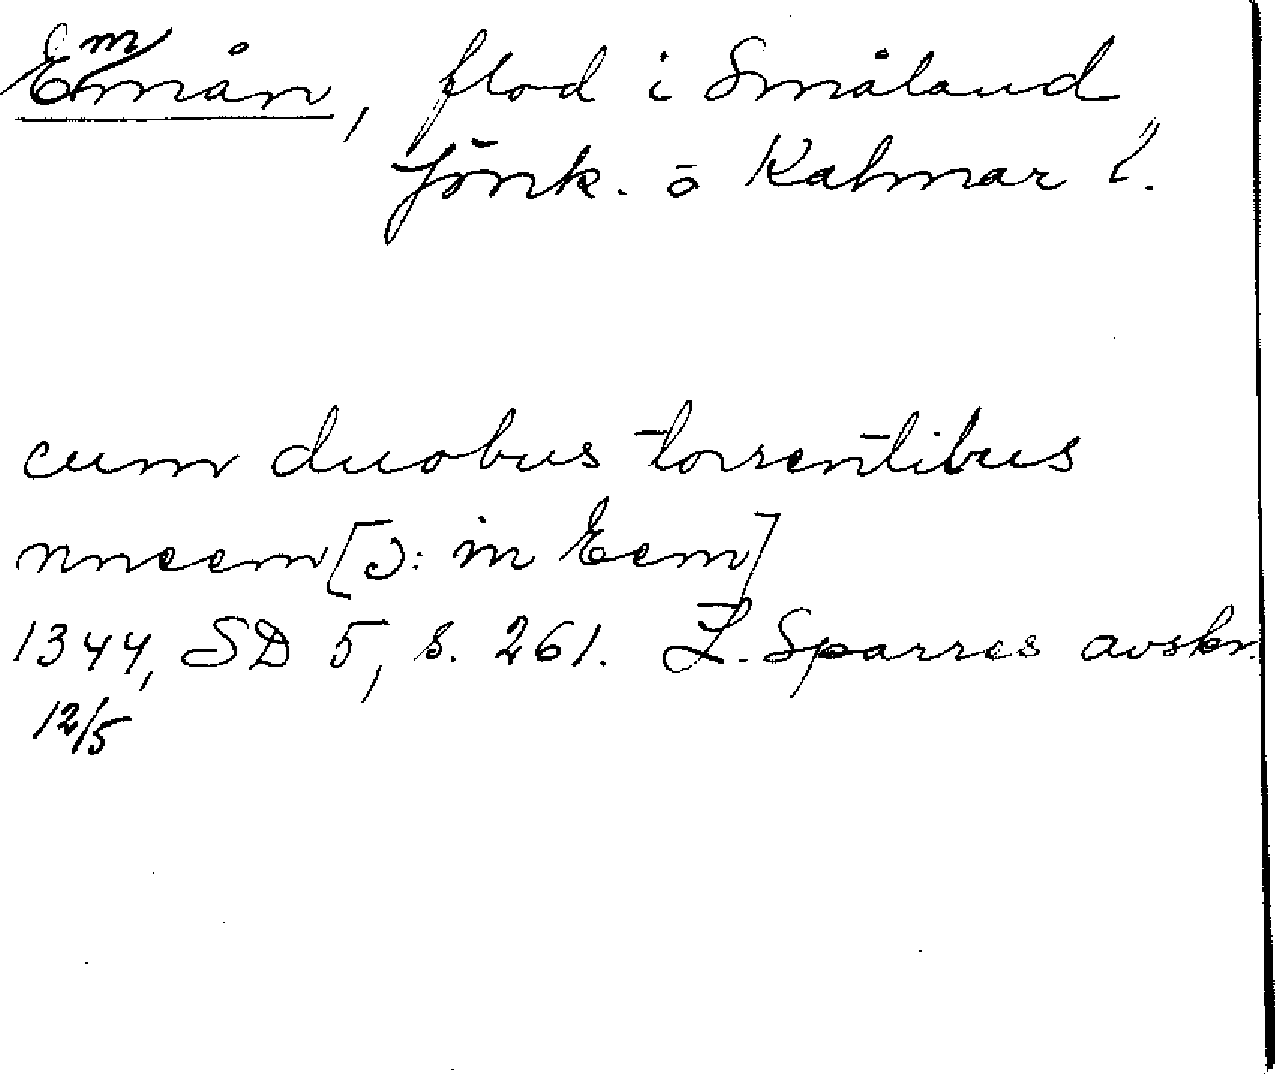 Emmån, flod i Småland
Jönk. o Kalmar l.
cum duobus torrentibus
nneem [ɔ: in Eem]
1344, SD 5, s. 261. L. Sparres avskr.
12/5